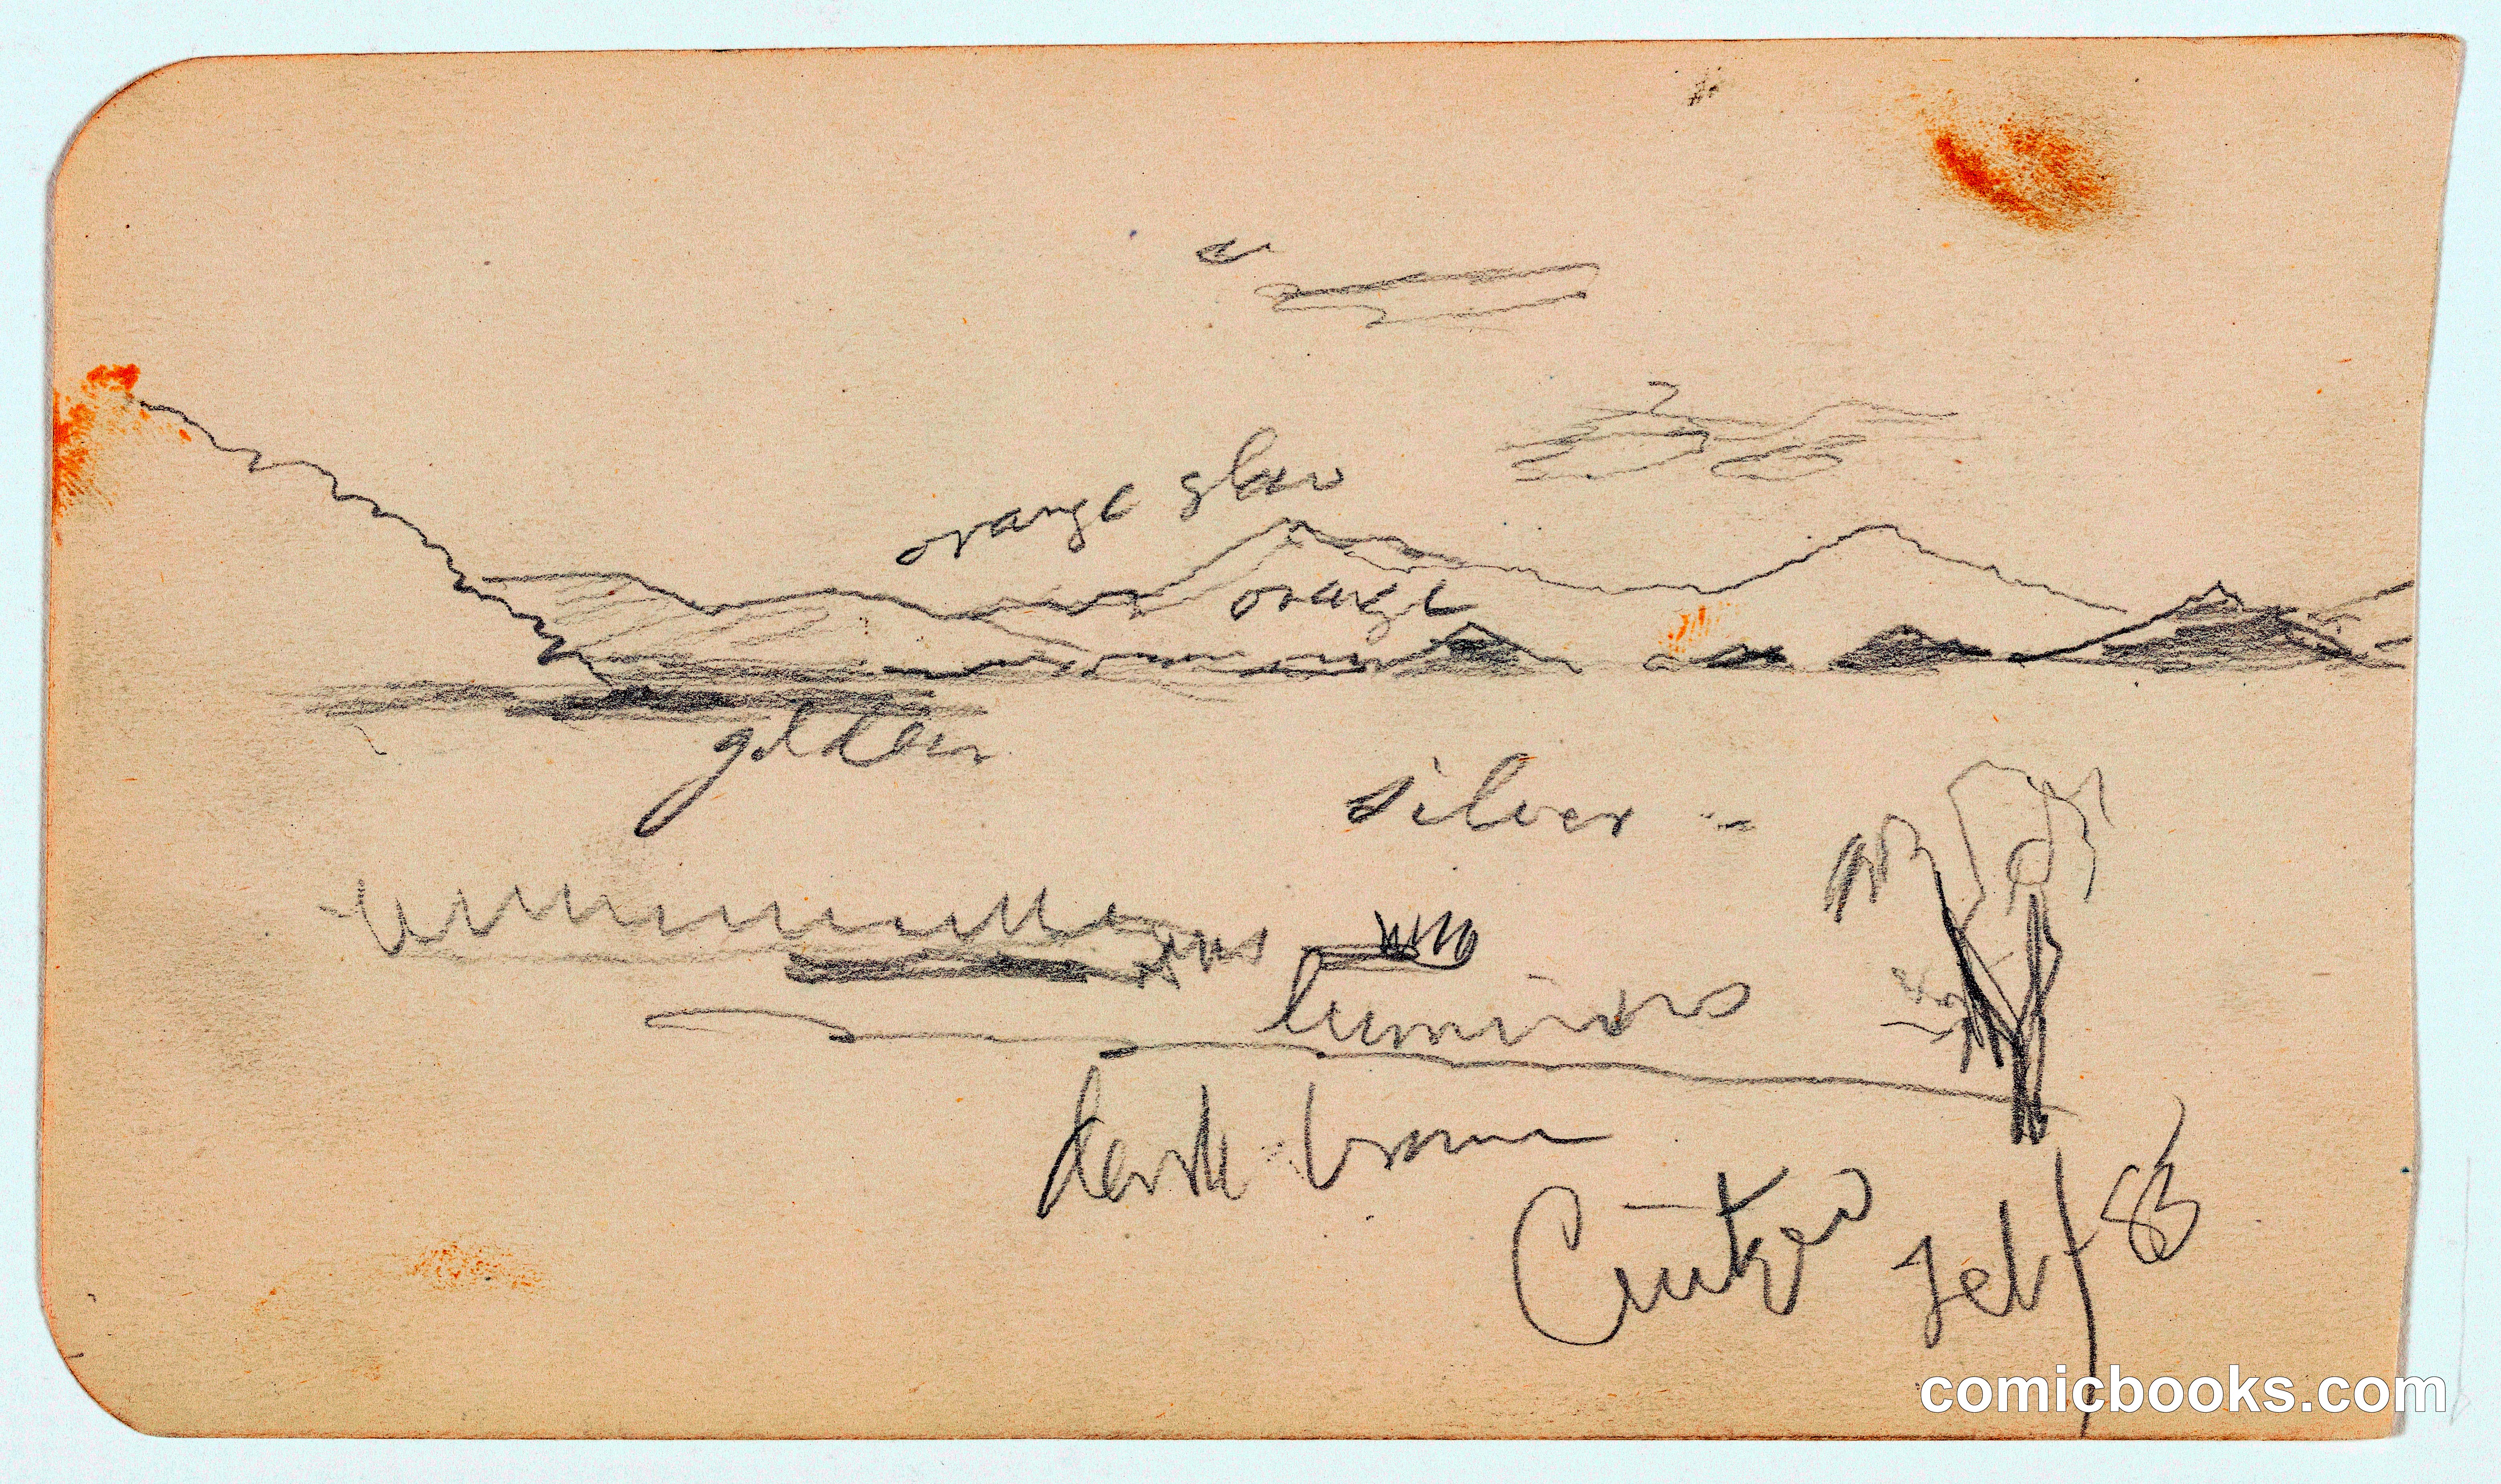 orange glow
orange
golden
silver
luminous
dark brown
Cuitzeo Feb/83
comicbooks.com